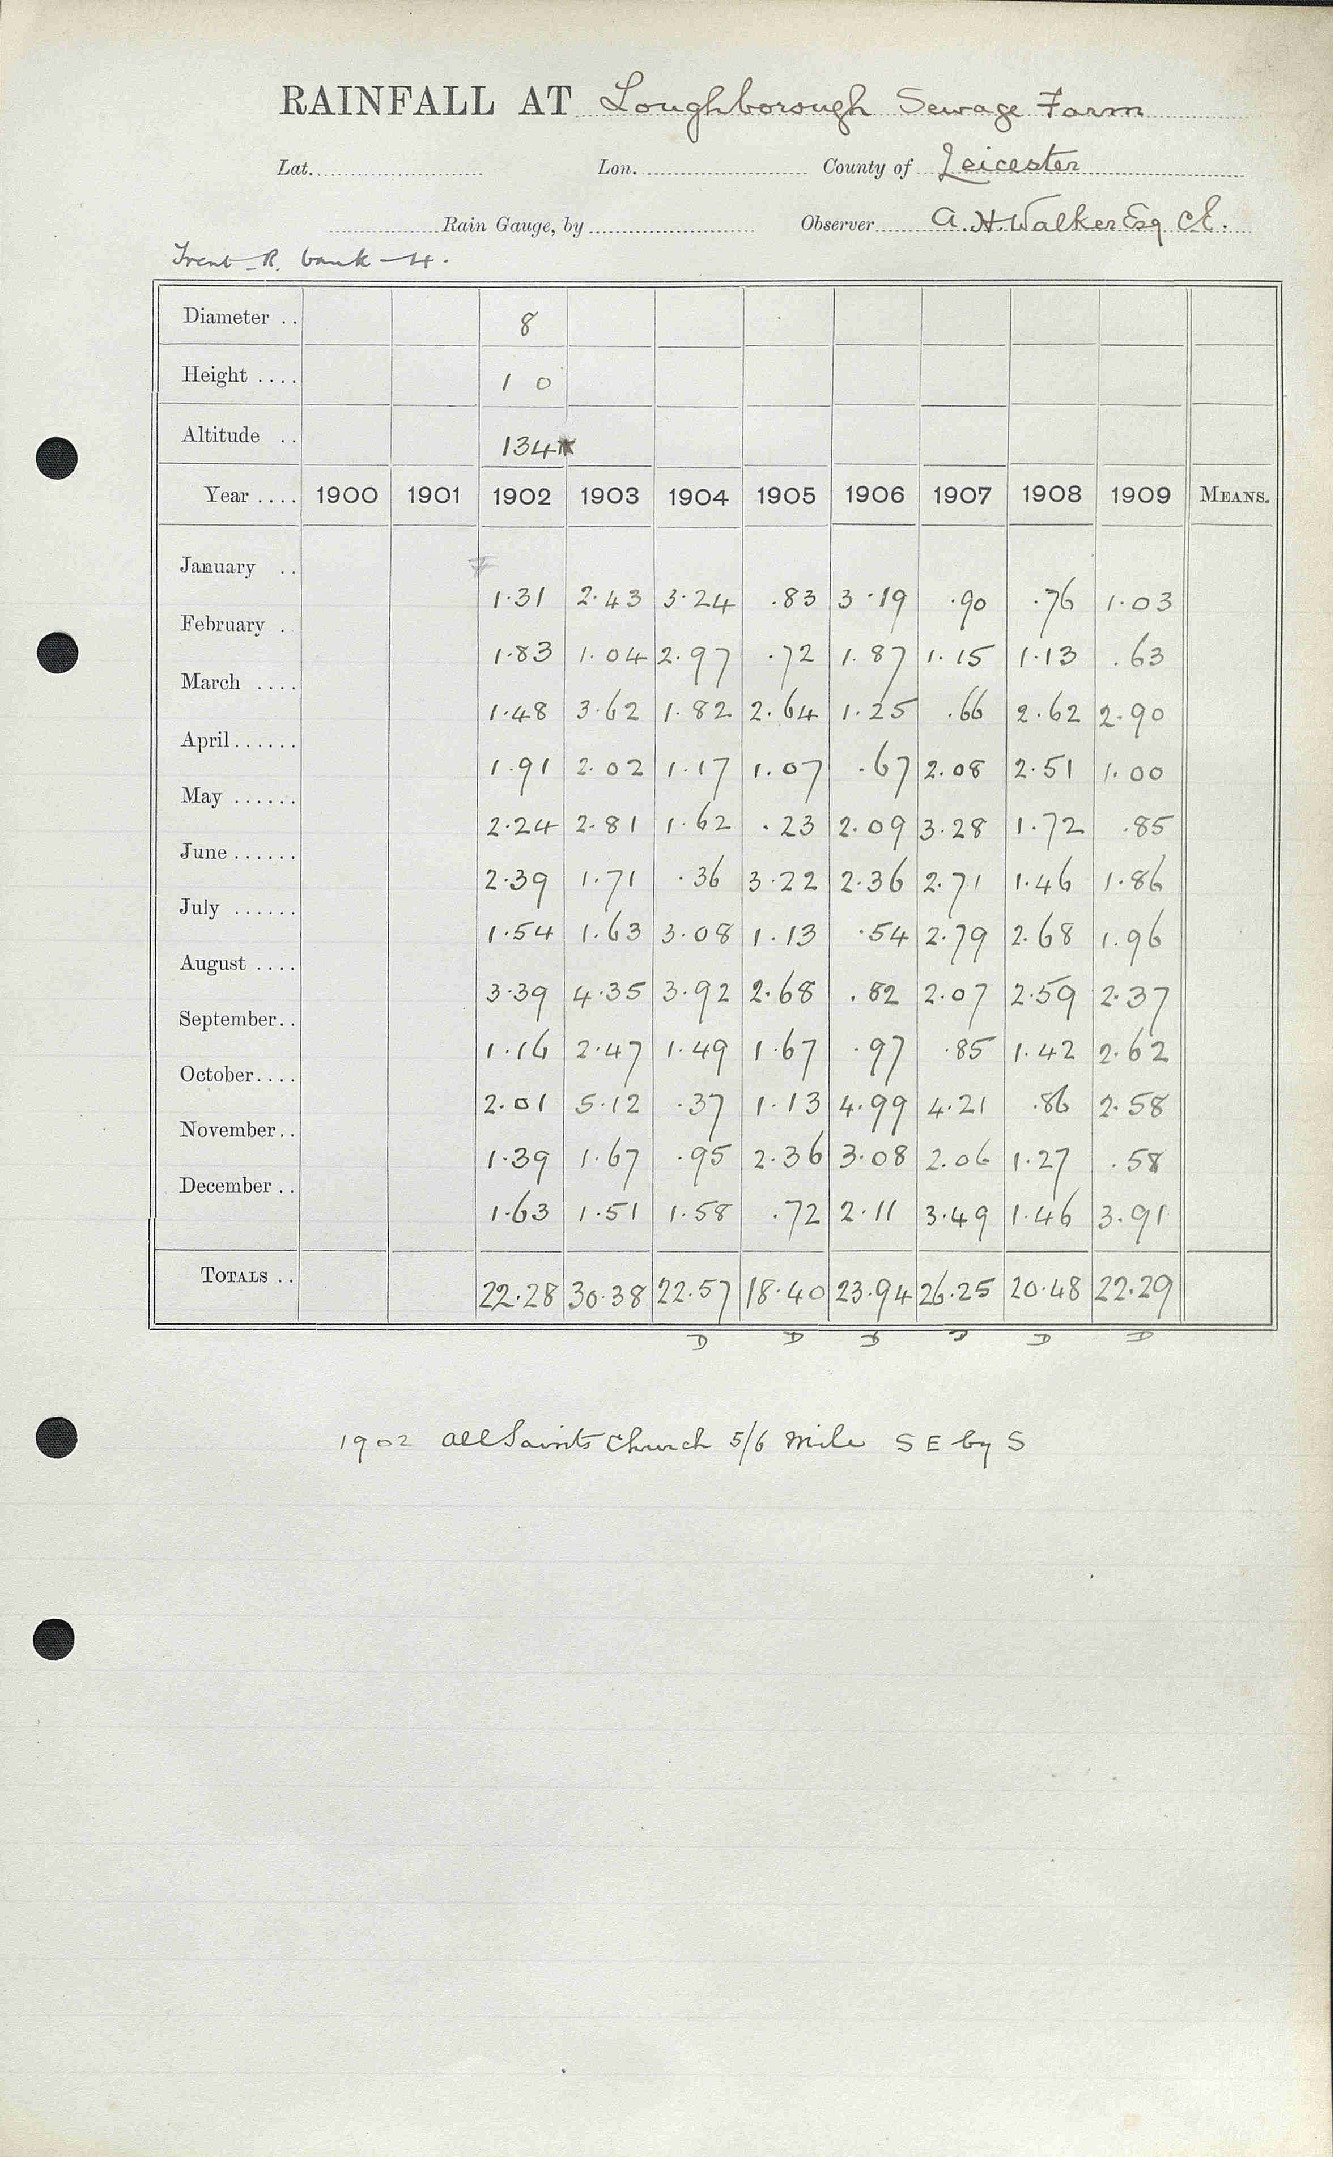 RAINFALL AT Loughborough Sewage Farm
Lat. Lon. County of Leicester
Rain Gauge, by Observer A. H. Walker Esq C.E.
Trent R. bank 4.
Diameter .. 8
Height .... 1 0
Altitude .. 134*
Year .... 1900 1901 1902 1903 1904 1905 1906 1907 1908 1909 MEANS.
January .. 1.31 2.43 3.24 .83 3.19 .90 .76 1.03
February . 1.83 1.04 2.97 .72 1.87 1.15 1.13 .63
March .... 1.48 3.62 1.82 2.64 1.25 .66 2.62 2.90
April...... 1.91 2.02 1.17 1.07 .67 2.08 2.51 1.00
May ...... 2.24 2.81 1.62 .23 2.09 3.28 1.72 .85
June...... 2.39 1.71 .36 3.22 2.36 2.71 1.46 1.86
July ...... 1.54 1.63 3.08 1.13 .54 2.79 2.68 1.96
August .... 3.39 4.35 3.92 2.68 .82 2.07 2.59 2.37
September.. 1.16 2.47 1.49 1.67 .97 .85 1.42 2.62
October.... 2.01 5.12 .37 1.13 4.99 4.21 .86 2.58
November.. 1.39 1.67 .95 2.36 3.08 2.06 1.27 .58
December .. 1.63 1.51 1.58 .72 2.11 3.49 1.46 3.91
TOTALS .. 22.28 30.38 22.57 18.40 23.94 26.25 20.48 22.29
D D D D D D
1902 All Saints Church 5/6 mile S E by S